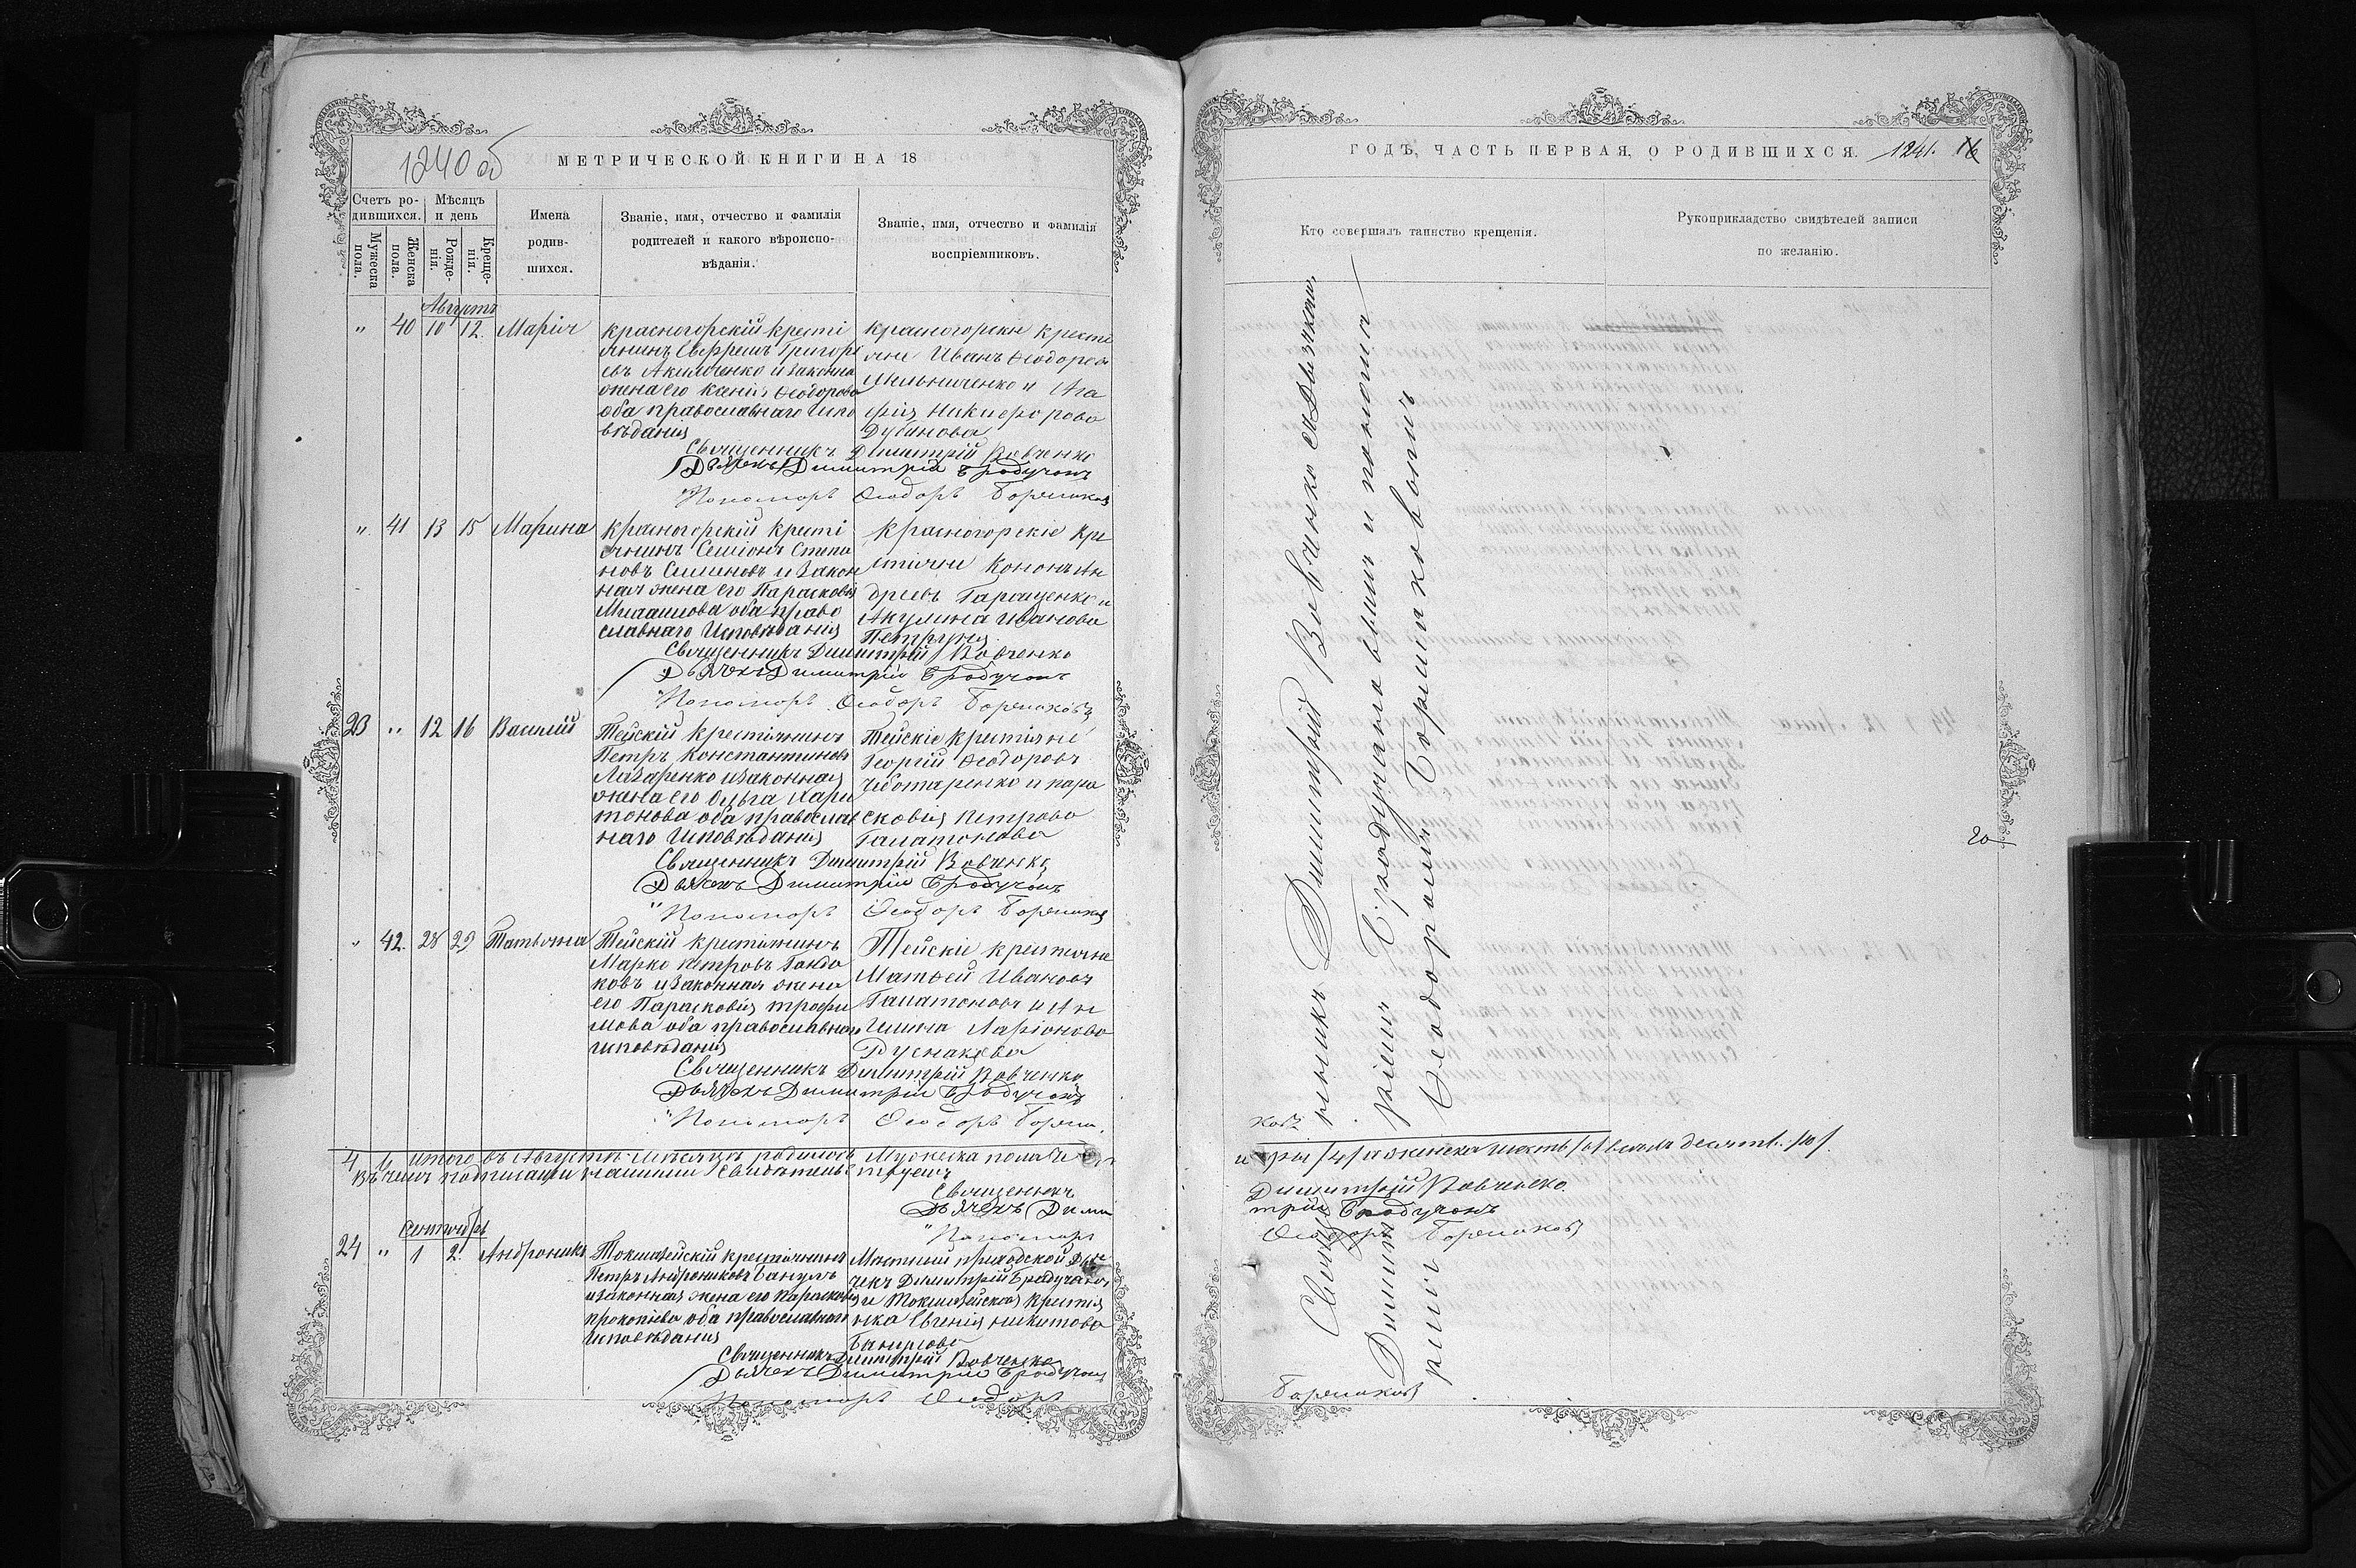 1240 об
МЕТРИЧЕСКОЙ КНИГИ НА 18
Счетъ ро-
дившихся.
Мѣсяцъ
и день
Мужеска
пола.
Женска
пола.
Рожде-
нія.
Креще-
нія.
Имена
родив-
шихся.
Званіе, имя, отчество и фамилія
родителей и какого вѣроиспо-
вѣданія.
Званіе, имя, отчество и фамилія
воспріемниковъ.
Августъ
" 40 10 12. Марія
красногорскій кресті
янинъ Григорі
евъ и законна
жена его Ксенія Ѳеодорова
оба православнаго испо
вѣданія
красногорскіе кресті
яне Иванъ Ѳеодоровъ
Мельниченко и Ага
фія Никифорова
Дубинова
Священникъ Димитрій Вовченко
Дьячекъ Димитрій Брадучанъ
Пономарь Ѳеодоръ Боршковъ
" 41 13 15 Марина
Красногорскій кресті
янинъ Семіонъ Степа
новъ и закон
ная жена его Парасковія
оба право
славнаго исповѣданія
Красногорскіе кре
стіяне Кононъ Ан
дреевъ Геращенко и
Акулина Иванова
Священникъ Димитрій Вовченко
Дьячекъ Димитрій Брадучанъ
Пономарь Ѳеодоръ Боршковъ
23 " 12 16 Василій
Тейскій крестіянинъ
Петръ Константиновъ
Лазаренко и законная
жена его Ольга Хари
тонова оба православ
наго исповѣданія
Тейскіе крестіяне
Георгій Ѳеодоровъ
Чеботаренко и Пара
сковія Петрова
Галатонова
Священникъ Димитрій Вовченко
Дьячекъ Димитрій Брадучанъ
Пономарь Ѳеодоръ Боршковъ
" 42. 28 29 Татьяна
Тейскій крестіянинъ
Марко Петровъ
и законная жена
его Парасковія Трофи
мова оба православнаго
исповѣданія
Тейскіе крестіяне
Матѳей Ивановъ
Галатоновъ и Ан
Ларіонова
Руснакова
Священникъ Димитрій Вовченко
Дьячекъ Димитрій Брадучанъ
Пономарь Ѳеодоръ Борш.
итого въ Августѣ мѣсяцѣ родилось Мужеска пола
Въ чемъ подписами нашими свидѣтельствуемъ
Священникъ
Дьячекъ Дими
Пономарь
Сентябрь
24 " 1 2 Андроникъ
крестіянинъ
Петръ Андрониковъ
и законная жена его Парасковія
Прокопіева оба православнаго
исповѣданія
Мѣстный приходской Дья
чекъ Димитрій Брадучанъ
и крестія
нка Евгенія Никитова
Священникъ Димитрій Вовченко
Дьячекъ Димитрій Брадучанъ
Пономарь Ѳеодоръ
ГОДЪ, ЧАСТЬ ПЕРВАЯ, О РОДИВШИХСЯ.
1241. 16
Кто совершалъ таинство крещенія.
Рукоприкладство свидѣтелей записи
по желанію.
Священникъ Димитрій Вовченко съ Дьячкомъ
Димитріемъ Брадучановымъ и пономаремъ
Ѳеодоромъ Боршковомъ
20
ковъ
/4/ а женска шесть /6/ всего десять /10/.
Димитрій Вовченко.
трій Брадучанъ
Ѳеодоръ Боршковъ
Боршковъ